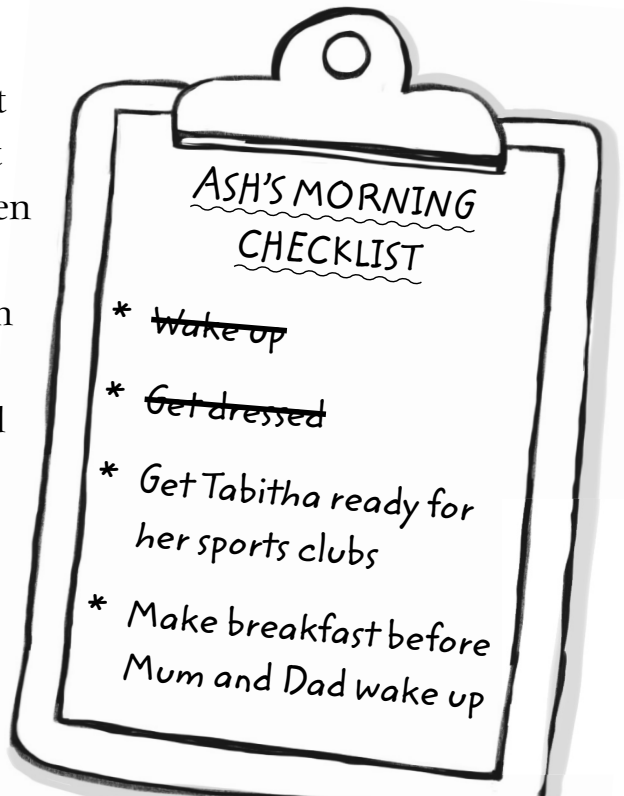 ASH'S MORNING
CHECKLIST
* Wake up
* Get dressed
* Get Tabitha ready for
her sports clubs
* Make breakfast before
Mum and Dad wake up